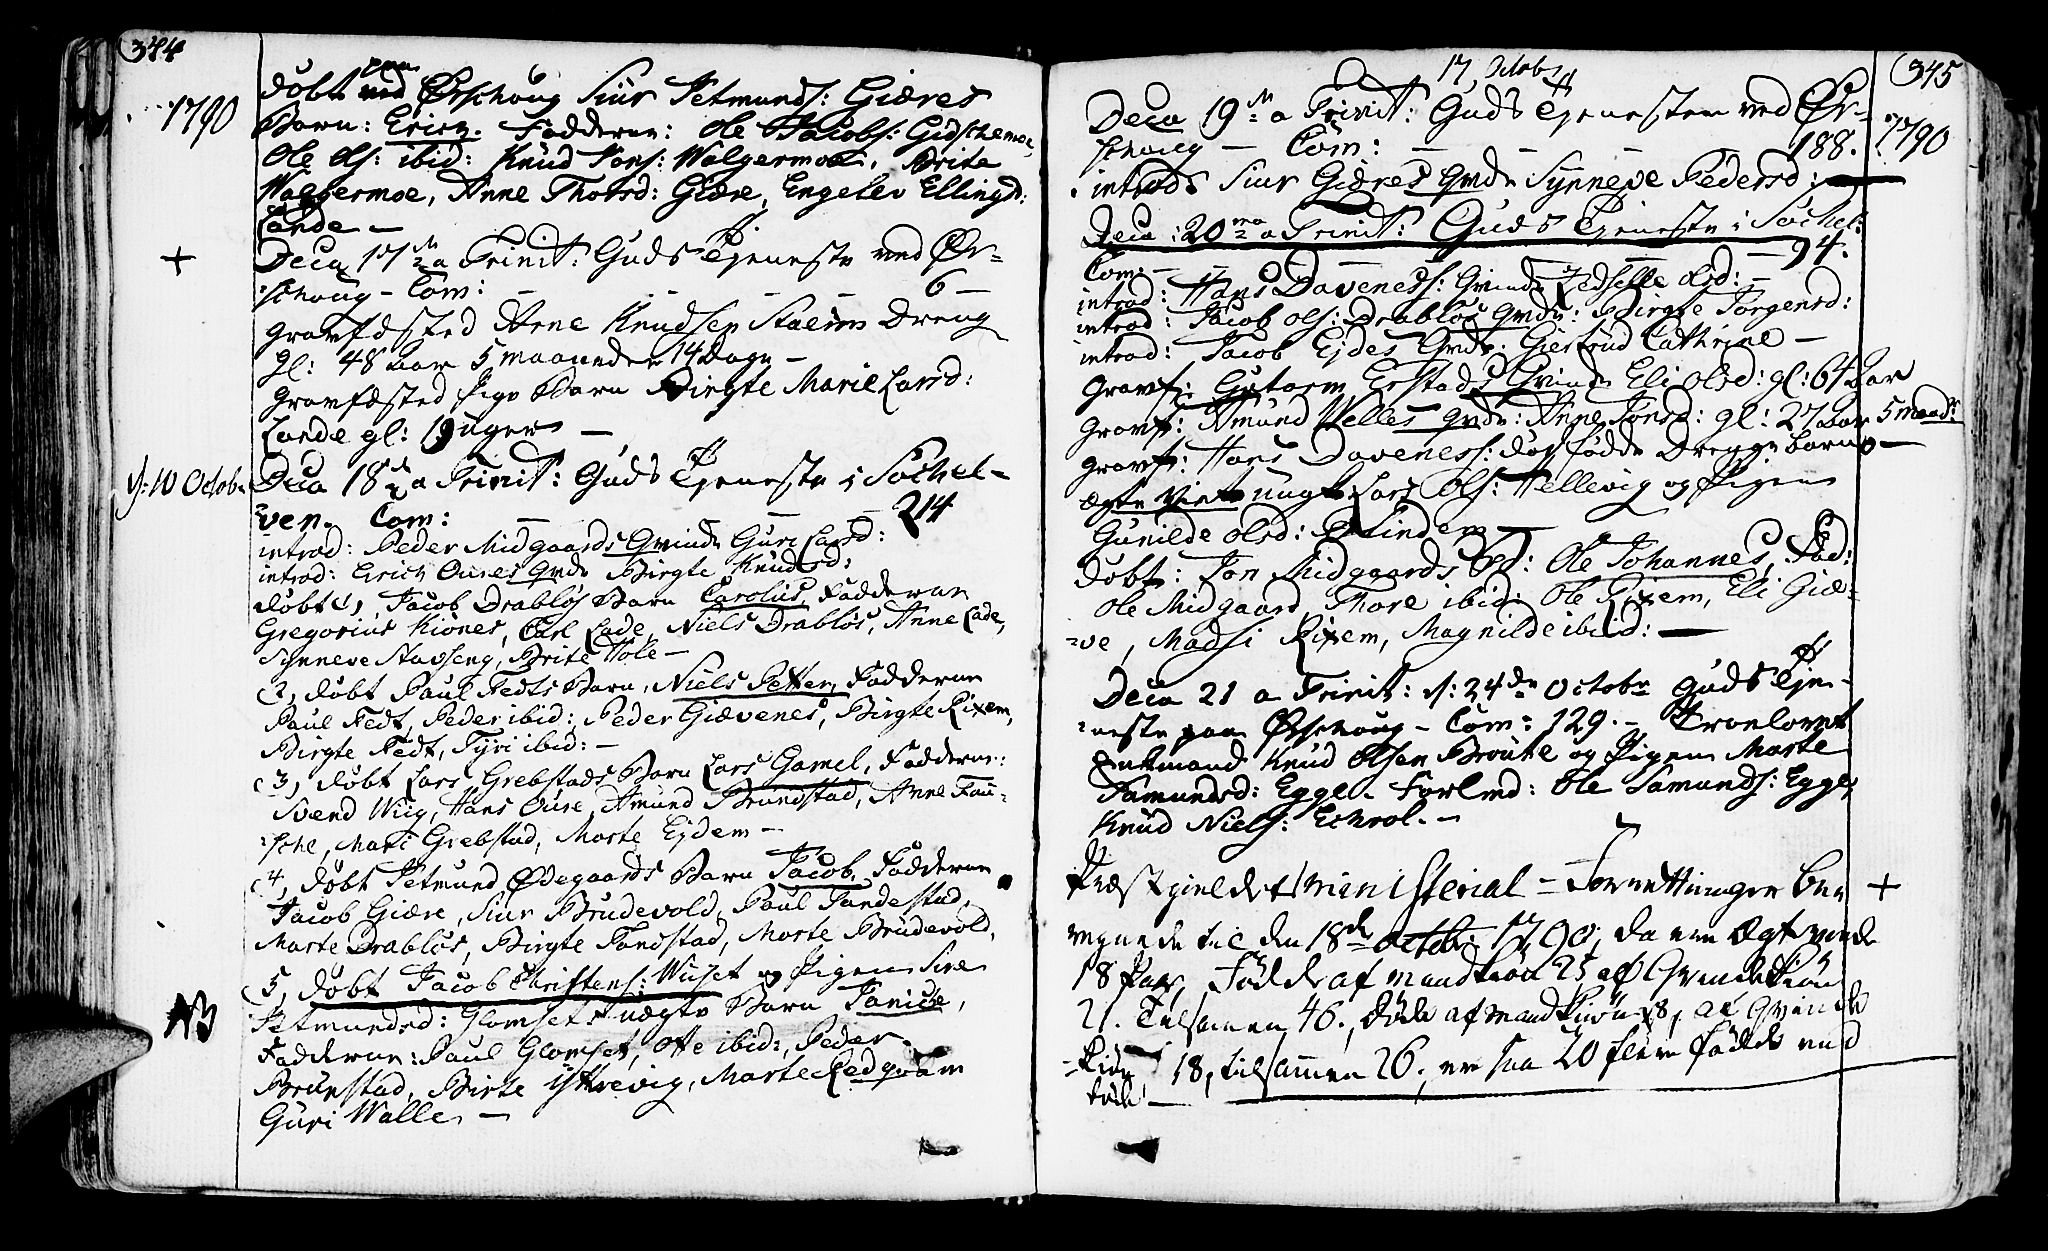 344
1790
paa
døbt ved Ørschoug Siur Petmunds: Giæres
Barn: Erich. Fadderne: Ole Jacobs: Gidschemoe,
Ole Ols: ibid: Knud Jons: Walgermoe, Brite
Walgermoe, Anne Thorsd: Giære, Engelev Ellingsd:
Lande —
+
Dca 17 a Trinit: Guds Tjeneste ved Ør-
schoug — Com: — — — — 6 —
gravfæsted Arne Knudsen Staeims Dreng
gl: 48 aar 5 maaneder 14 Dage —
gravfæsted Pige Barn Birgte Marie Larsd:
Lande gl: 19 uger —
d: 10 Octob:
Dca 18 a Trinit: Guds Tjeneste i Søchel-
ven. Com: — — — 214
introd: Peder Midgaards Qvinde Guri Larsd:
introd: Erich Oures Qvde Birgte Knudsd:
døbt 1, Jacob Drabløs Barn Carolus, Fadderne
Gregorius Kiønes, Carl Lade, Niels Drabløs, Anne Lade,
Synneve Stavseng, Brite Hole —
2, døbt Paul Fedts Barn, Niels Petter, Fadderne
Paul Fedt, Peder ibid: Peder Giævenes, Birgte Rixem,
Birgte Fedt, Tyri ibid: —
3, døbt Lars Grebstads Barn Lars Gamel, Fadderne:
Svend Wiig, Hans Oure, Amund Brundstad, Anne Tan-
sche, Mari Grebstad, Marte Ejdem —
4, døbt Petmund Ødegaards Barn Jacob, Fadderne
Jacob Giære, Siur Brudevold, Paul Tandestad,
Marte Drabløs, Birgte Tandstad, Marte Brudevold.
NB
5, døbt Jacob Christens: Wiset og Pigen Sire
Petmundsd: Glomsets uægte Barn Janicke,
Fadderne: Paul Glomset, Otte ibid:, Peder
Brunstad, Birte Ysthrevig, Marte Redqvam
Guri Walle —
345
1790
17, Octob
Dca 19 a Trinit: Guds Tjenesten ved Ør-
schoug — Com: — — — 188.
introd: Siur Giæres Qvde Synneve Pedersd: —
Dca: 20 a Trinit: Guds Tjeneste i Søchel:
Com: — — — — — 94.
introd: Hans Davenes's: Qvinde Zedselle Olsd: —
introd: Jacob Ols: Drabløs Qvde: Birgte Jørgensd:
introd: Jacob Ejdes Qvde: Giertrud Cathrine —
gravf: Gutorm Erstads Qvinde Eli Olsd: gl: 64 Aar
gravf: Amund Welles qvde: Anne Jonsd: gl: 27 Aar 5 maadr
gravf: Hans Davenes's: død fødde Drengebarn —
ægte viet ungk: Lars Ols: Hellevig og Pigen
Gunilde Olsd: Linden —
døbt: Jon Midgaards Bd: Ole Johannes, Fad:
Ole Midgaard, Thore ibid: Ole Rixem, Eli Giæ-
ve, Madsi Rixem, Magnilde ibid: —
Dca 21 a Trinit: d: 24de Octobr Guds Tje-
neste paa Ørschoug — Com: 129. — Trolovet
Enkemand Knud Olsen Broute og Pigen Marte
Samundsd: Egge. Forlmd: Ole Samunds: Egge,
Knud Niels: Echrol. —
Præstgieldets ministerial-Forrettninger be- +
regnede til den 18de Octob: 1790, da ere Ægteviede
18 Par, Fødde af mandkiøn 25, af Qvindekiøn
21. Tilsamen 46., døde af mandkiøn 8, af Qvinde
kiøn 18, tilsammen 26., ere saa 20 flere fødde end
døde —